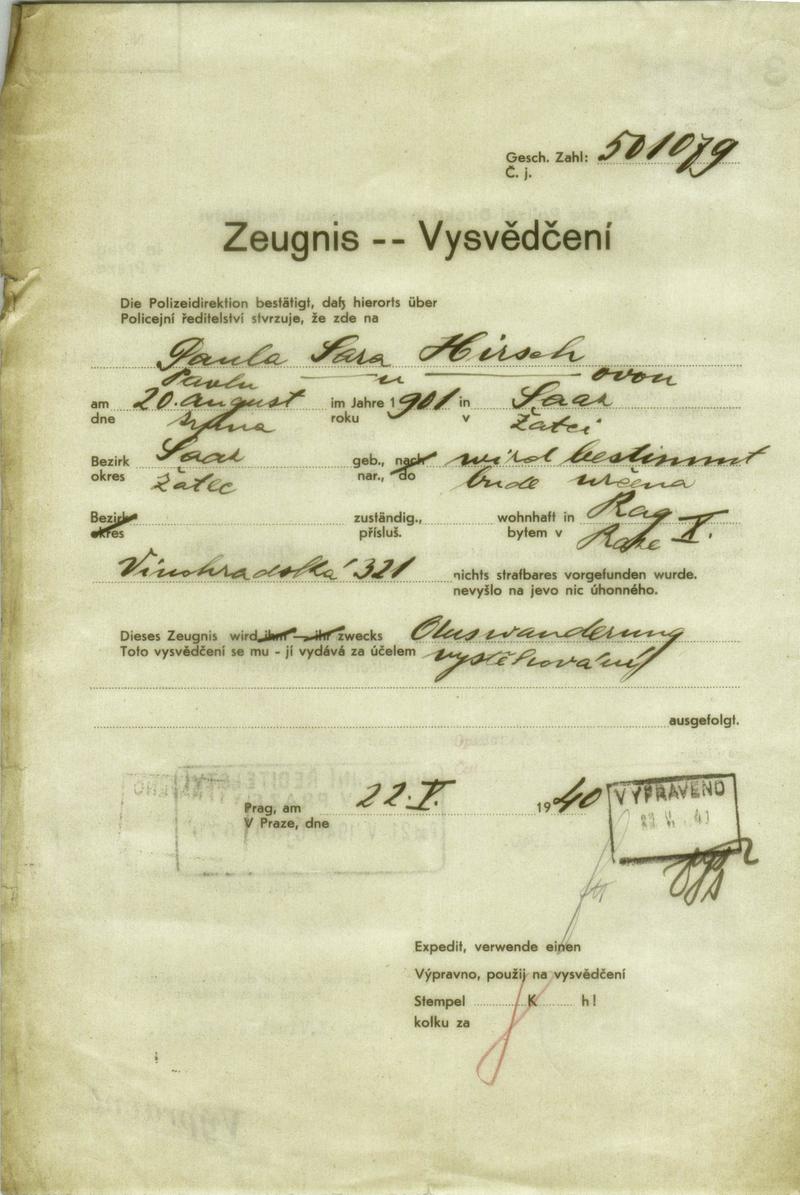 Gesch. Zahl: 501079
Č. j.
Zeugnis -- Vysvědčení
Die Polizeidirektion bestätigt, daß hierorts über
Policejní ředitelství stvrzuje, že zde na
Paula Sara Hirsch
Pavlu — u — ovou
am 20. august im Jahre 1901 in Saaz
dne srpna roku v Žatci
Bezirk Saaz geb., nach wird bestimmt
okres Žatec nar., do bude určena
Bezirk zuständig., wohnhaft in Prag X.
okres přísluš. bytem v Praze
Vinohradská 321 nichts strafbares vorgefunden wurde.
nevyšlo na jevo nic úhonného.
Dieses Zeugnis wird ihm — ihr zwecks Auswanderung
Toto vysvědčení se mu - jí vydává za účelem vystěhování
ausgefolgt.
Prag, am 22. V. 1940
V Praze, dne
VYPRAVENO
Expedit, verwende einen
Výpravno, použij na vysvědčení
Stempel K h!
kolku za